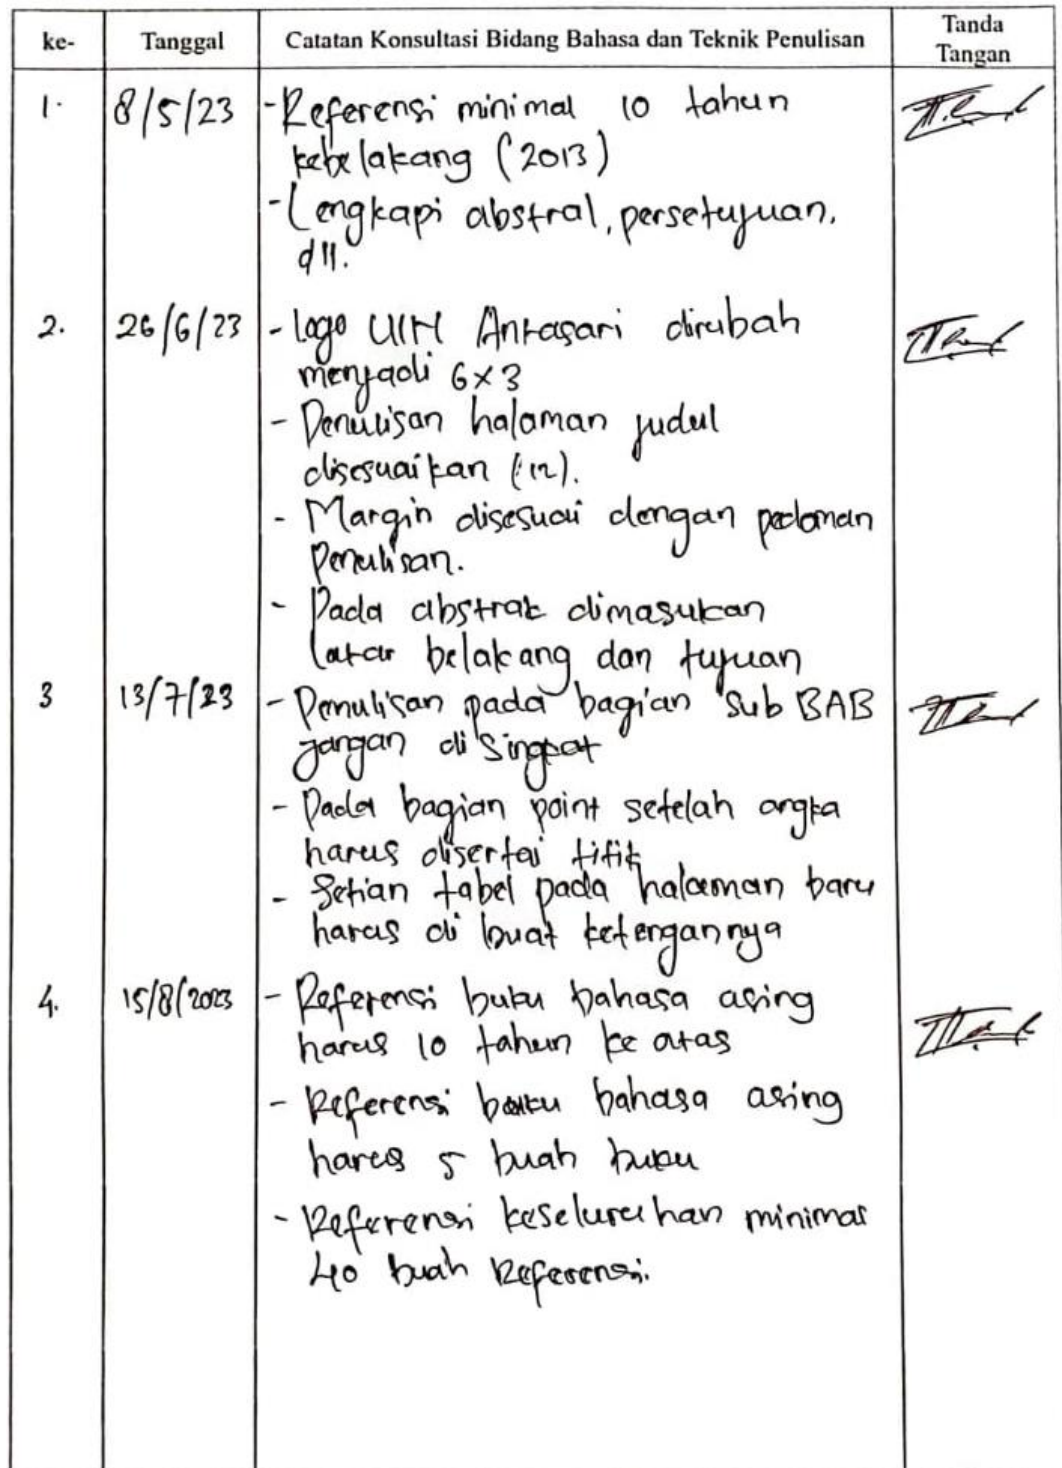 ke- Tanggal Catatan Konsultasi Bidang Bahasa dan Teknik Penulisan Tanda Tangan
1. 8/5/23 - Referensi minimal 10 tahun
kebelakang (2013)
- Lengkapi abstral, persetujuan,
dll.
2. 26/6/23 - Logo UIN Antasari dirubah
menjadi 6x3
- Penulisan halaman judul
disesuaikan (12).
- Margin disesuai dengan pedoman
Penulisan.
- Pada abstrak dimasukan
latar belakang dan tujuan
3 13/7/23 - Penulisan pada bagian Sub BAB
jangan di Singkat
- Pada bagian point setelah angka
harus disertai titik
- Setian tabel pada halaman baru
harus di buat ketergannya
4. 15/8/2023 - Referensi buku bahasa asing
harus 10 tahun ke atas
- Referensi buku bahasa asing
harus 5 buah buku
- Referensi keseluruhan minimal
40 buah Referensi.